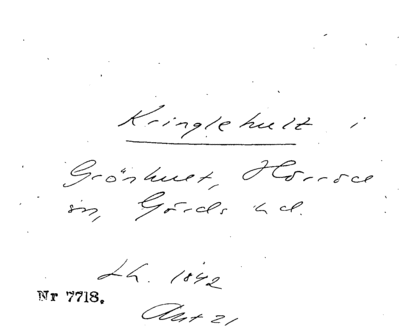 Kringlehult i
Grönhult, Hörröd
sn, Gärds hd.
Lh. 1842
Nr 7718.
Akt 21